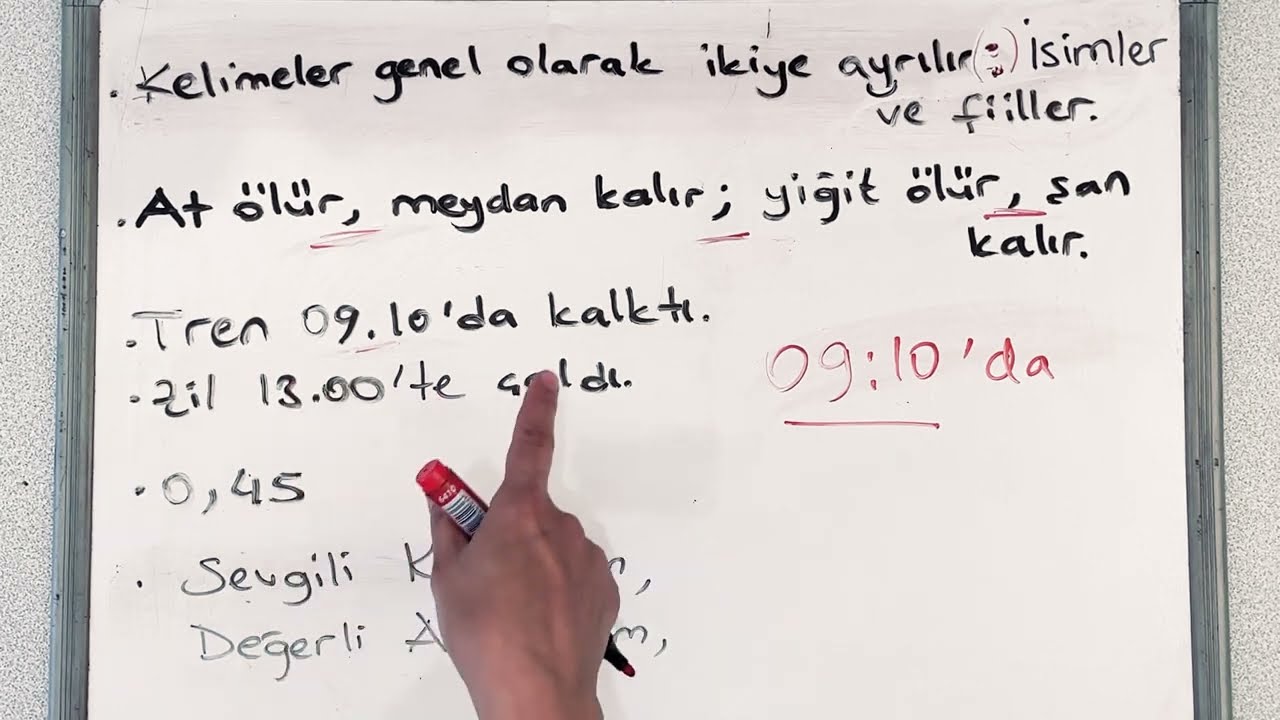 . Kelimeler genel olarak ikiye ayrılır(:) İsimler
ve fiiller.
. At ölür, meydan kalır; yiğit ölür, şan
kalır.
. Tren 09.10'da kalktı.
09:10'da
. Zil 13.00'te
. 0,45
. Sevgili
Değerli